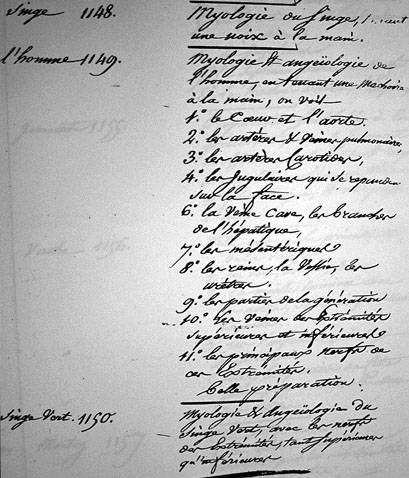 Singe 1148. Myologie du Singe, tenant
une noix à la main.
l'homme 1149. Myologie & angéiologie de
l'homme, en tenant une machoire
à la main, on voit
1.° le Cœur et l'aorte.
2.° les artères & Veines pulmonaires,
3.° les artères Carotides,
4.° les Jugulaires qui se repandent
sur la face.
6.° la Veine Cave, les branches
de l'hépatique,
7.° les mésentériques
8.° les reins, la Vessie, les
urètres.
9.° les parties de la génération
10.° les Veines des Extrémités
supérieures et inférieures
11.° les principaux nerfs de
ces Extrémités.
belle préparation.
Singe Vert. 1150. Myologie & Angéiologie du
Singe Vert, avec les nerfs
des Extrémités, tant supérieures
qu'inférieures